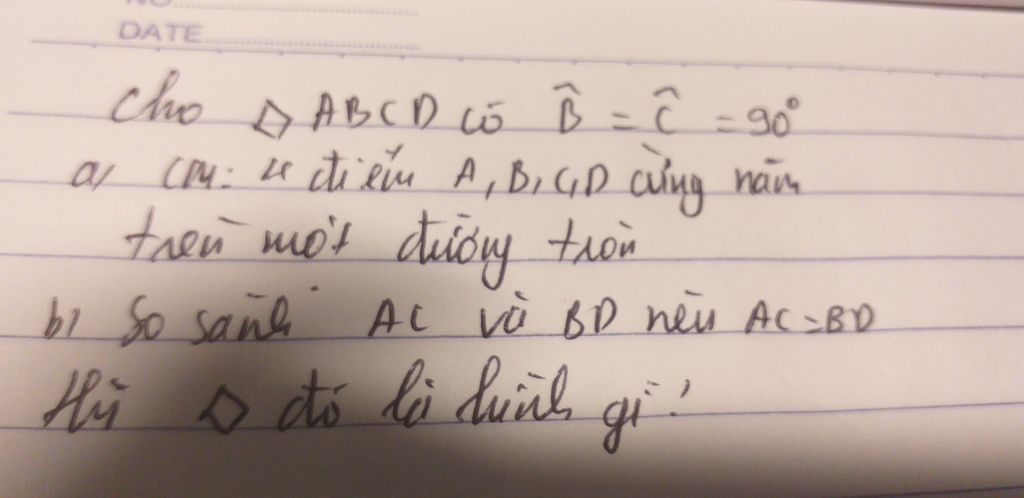 DATE
Cho ◇ ABCD có B̂ = Ĉ = 90°
a, CM: 4 điểm A, B, C, D cùng nằm
trên một đường tròn
b, So sánh AC và BD nếu AC=BD
thì ◇ đó là hình gì?